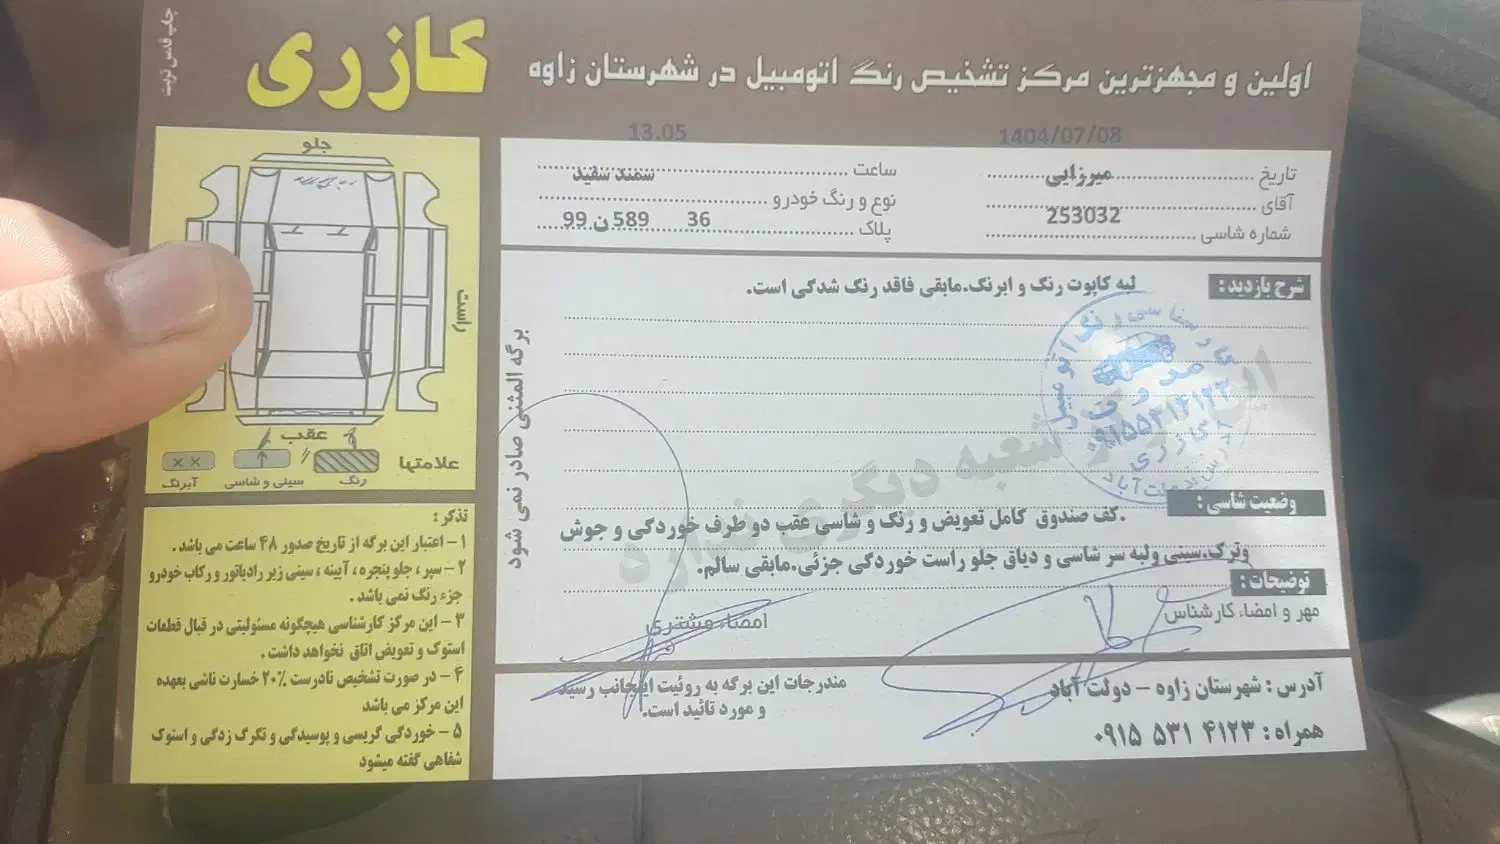 چاپ قدس تربت
کازری
اولین و مجهزترین مرکز تشخیص رنگ اتومبیل در شهرستان زاوه
1404/07/08
13.05
تاریخ
میرزایی
ساعت
سمند سفید
آقای
253032
نوع و رنگ خودرو
99 ن 589 36
شماره شاسی
پلاک
شرح بازدید :
لبه کاپوت رنگ و ابرنگ.مابقی فاقد رنگ شدگی است.
این مرکز شعبه دیگری ندارد
کارشناسی و رنگ اتومبیل
مروی
۰۹۱۵۵۳۱۴۱۲۳
کازری
دولت آباد
وضعیت شاسی :
.کف صندوق کامل تعویض و رنگ و شاسی عقب دو طرف خوردگی و جوش
وترک.سینی ولبه سر شاسی و دیاق جلو راست خوردگی جزئی.مابقی سالم.
توضیحات :
مهر و امضاء کارشناس
امضاء مشتری
آدرس : شهرستان زاوه – دولت آباد
همراه : ۰۹۱۵ ۵۳۱ ۴۱۲۳
مندرجات این برگه به روئیت اینجانب رسید
و مورد تائید است.
برگه المثنی صادر نمی شود
جلو
راست
عقب
علامتها
رنگ
سینی و شاسی
آبرنگ
تذکر :
۱ – اعتبار این برگه از تاریخ صدور ۴۸ ساعت می باشد .
۲ – سپر ، جلو پنجره ، آیینه ، سینی زیر رادیاتور و رکاب خودرو
جزء رنگ نمی باشد .
۳ – این مرکز کارشناسی هیچگونه مسئولیتی در قبال قطعات
استوک و تعویض اتاق نخواهد داشت .
۴ – در صورت تشخیص نادرست ۲۰٪ خسارت ناشی بعهده
این مرکز می باشد
۵ – خوردگی گریسی و پوسیدگی و تگرگ زدگی و استوک
شفاهی گفته میشود